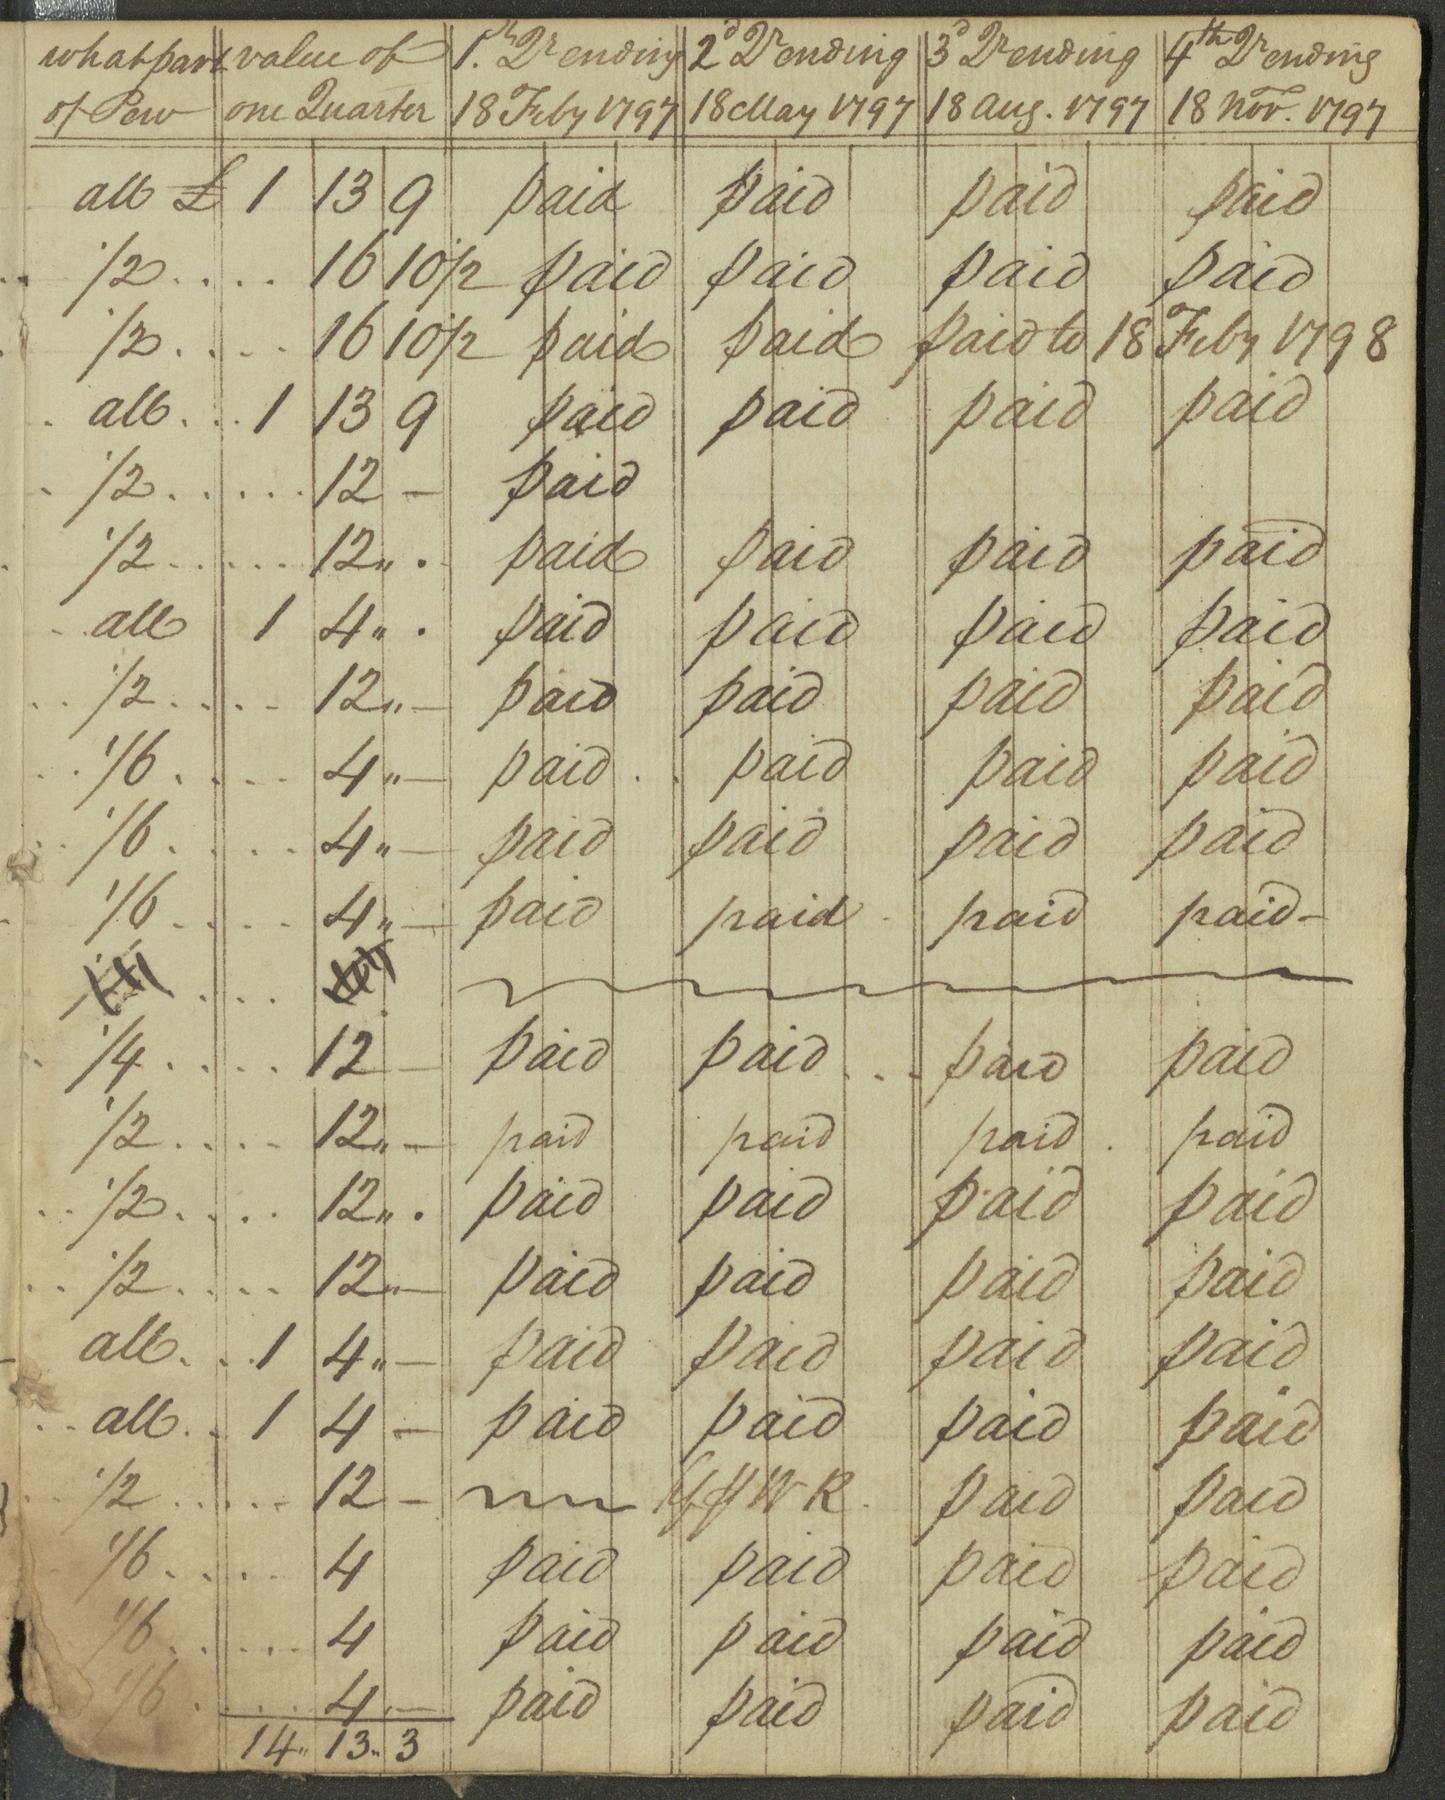 what part value of 1st Qr ending 2d Qr ending 3d Qr ending 4th Qr ending
of Pew one Quarter 18 Feby 1797 18 May 1797 18 Aug. 1797 18 Nov. 1797
all £ 1 13 9 paid paid paid paid
1/2 .... 16 10 1/2 paid paid paid paid
1/2 .... 16 10 1/2 paid paid paid to 18 Feby 1798
all ... 1 13 9 paid paid paid paid
1/2 ..... 12 - paid
1/2 ..... 12 " . paid paid paid paid
all 1 4 " . paid paid paid paid
1/2 .... 12 " - paid paid paid paid
1/6 .... 4 " - paid .. paid paid paid
1/6 .... 4 " - paid paid paid paid
1/6 .... 4 " - paid paid paid paid -
1/4 .... 12 - paid paid ... paid paid
1/2 .... 12 " - paid paid paid . paid
1/2 .... 12 " . paid paid paid paid
1/2 .... 12 " - paid paid paid paid
all ... 1 4 " - paid paid paid paid
all .. 1 4 - paid paid paid paid
1/2 ..... 12 - W R . paid paid
1/6 .... 4 paid paid paid paid
1/6 ..... 4 paid paid paid paid
1/6 .... 4 - paid paid paid paid
14 " 13 " 3